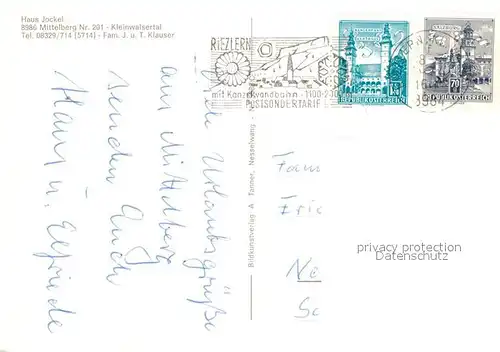 Haus Jockel
8986 Mittelberg Nr. 201 - Kleinwalsertal
Tel. 08329/714 (5714) - Fam. J. u. T. Klauser
RIEZLERN
mit Kanzelwandbahn - 1100-2000
POSTSONDERTARIF
REPUBLIK ÖSTERREICH
SALZBURG
70
REPUBLIK ÖSTERREICH
Viele Urlaubsgrüße
aus Mittelberg
senden Euch
Hans u. Elfriede
Bildkunstverlag A. Tanner, Nesselwang
Fam
Eric
Ne
Sc
privacy protection
Datenschutz